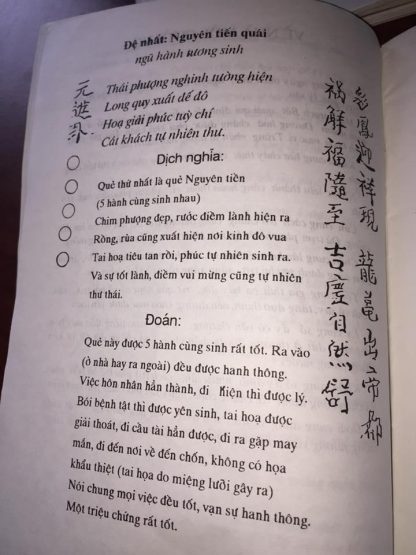 Đệ nhất: Nguyên tiến quái
ngũ hành tương sinh
Thái phượng nghinh tường hiện
Long quy xuất đế đô
Hoạ giải phúc tuỳ chí
Cát khách tự nhiên thư.
元進卦
Dịch nghĩa:
Quẻ thứ nhất là quẻ Nguyên tiền
(5 hành cùng sinh nhau)
Chim phượng đẹp, rước điềm lành hiện ra
Rồng, rùa cũng xuất hiện nơi kinh đô vua
Tai hoạ tiêu tan rồi, phúc tự nhiên sinh ra.
Và sự tốt lành, điềm vui mừng cũng tự nhiên
thư thái.
Đoán:
Quẻ này được 5 hành cùng sinh rất tốt. Ra vào
(ở nhà hay ra ngoài) đều được hanh thông.
Việc hôn nhân hẳn thành, đi kiện thì được lý.
Bói bệnh tật thì được yên sinh, tai hoạ được
giải thoát, đi cầu tài hẳn được, đi ra gặp may
mắn, đi đến nơi về đến chốn, không có họa
khẩu thiệt (tai họa do miệng lưỡi gây ra)
Nói chung mọi việc đều tốt, vạn sự hanh thông.
Một triệu chứng rất tốt.
彩鳳迎祥現 龍亀出帝都
禍解福隨至 吉慶自然舒